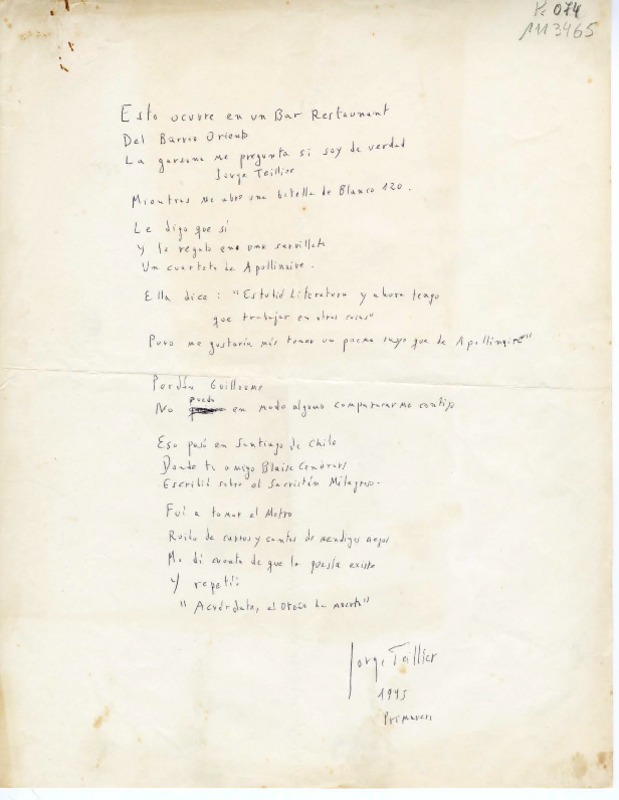 K. 074
113465
Esto ocurre en un Bar Restaurant
Del Barrio Oriente
La garzona me pregunta si soy de verdad
Jorge Teillier
Mientras me abre una botella de Blanco 120.
Le digo que sí
Y le regalo en una servilleta
Un cuarteto de Apollinaire.
Ella dice: "Estudié Literatura y ahora tengo
que trabajar en otras cosas"
Pero me gustaría más tener un poema suyo que de Apollinaire"
Perdón Guillaume
puedo
No en modo alguno compararme contigo
Eso pasó en Santiago de Chile
Donde tu amigo Blaise Cendrars
Escribió sobre el Sacristán Milagroso.
Fui a tomar el Metro
Ruido de carros y cantos de mendigos ciegos
Me di cuenta de que la poesía existe
Y repetí:
"Acuérdate, el Otoño ha muerto"
Jorge Teillier
1995
Primavera